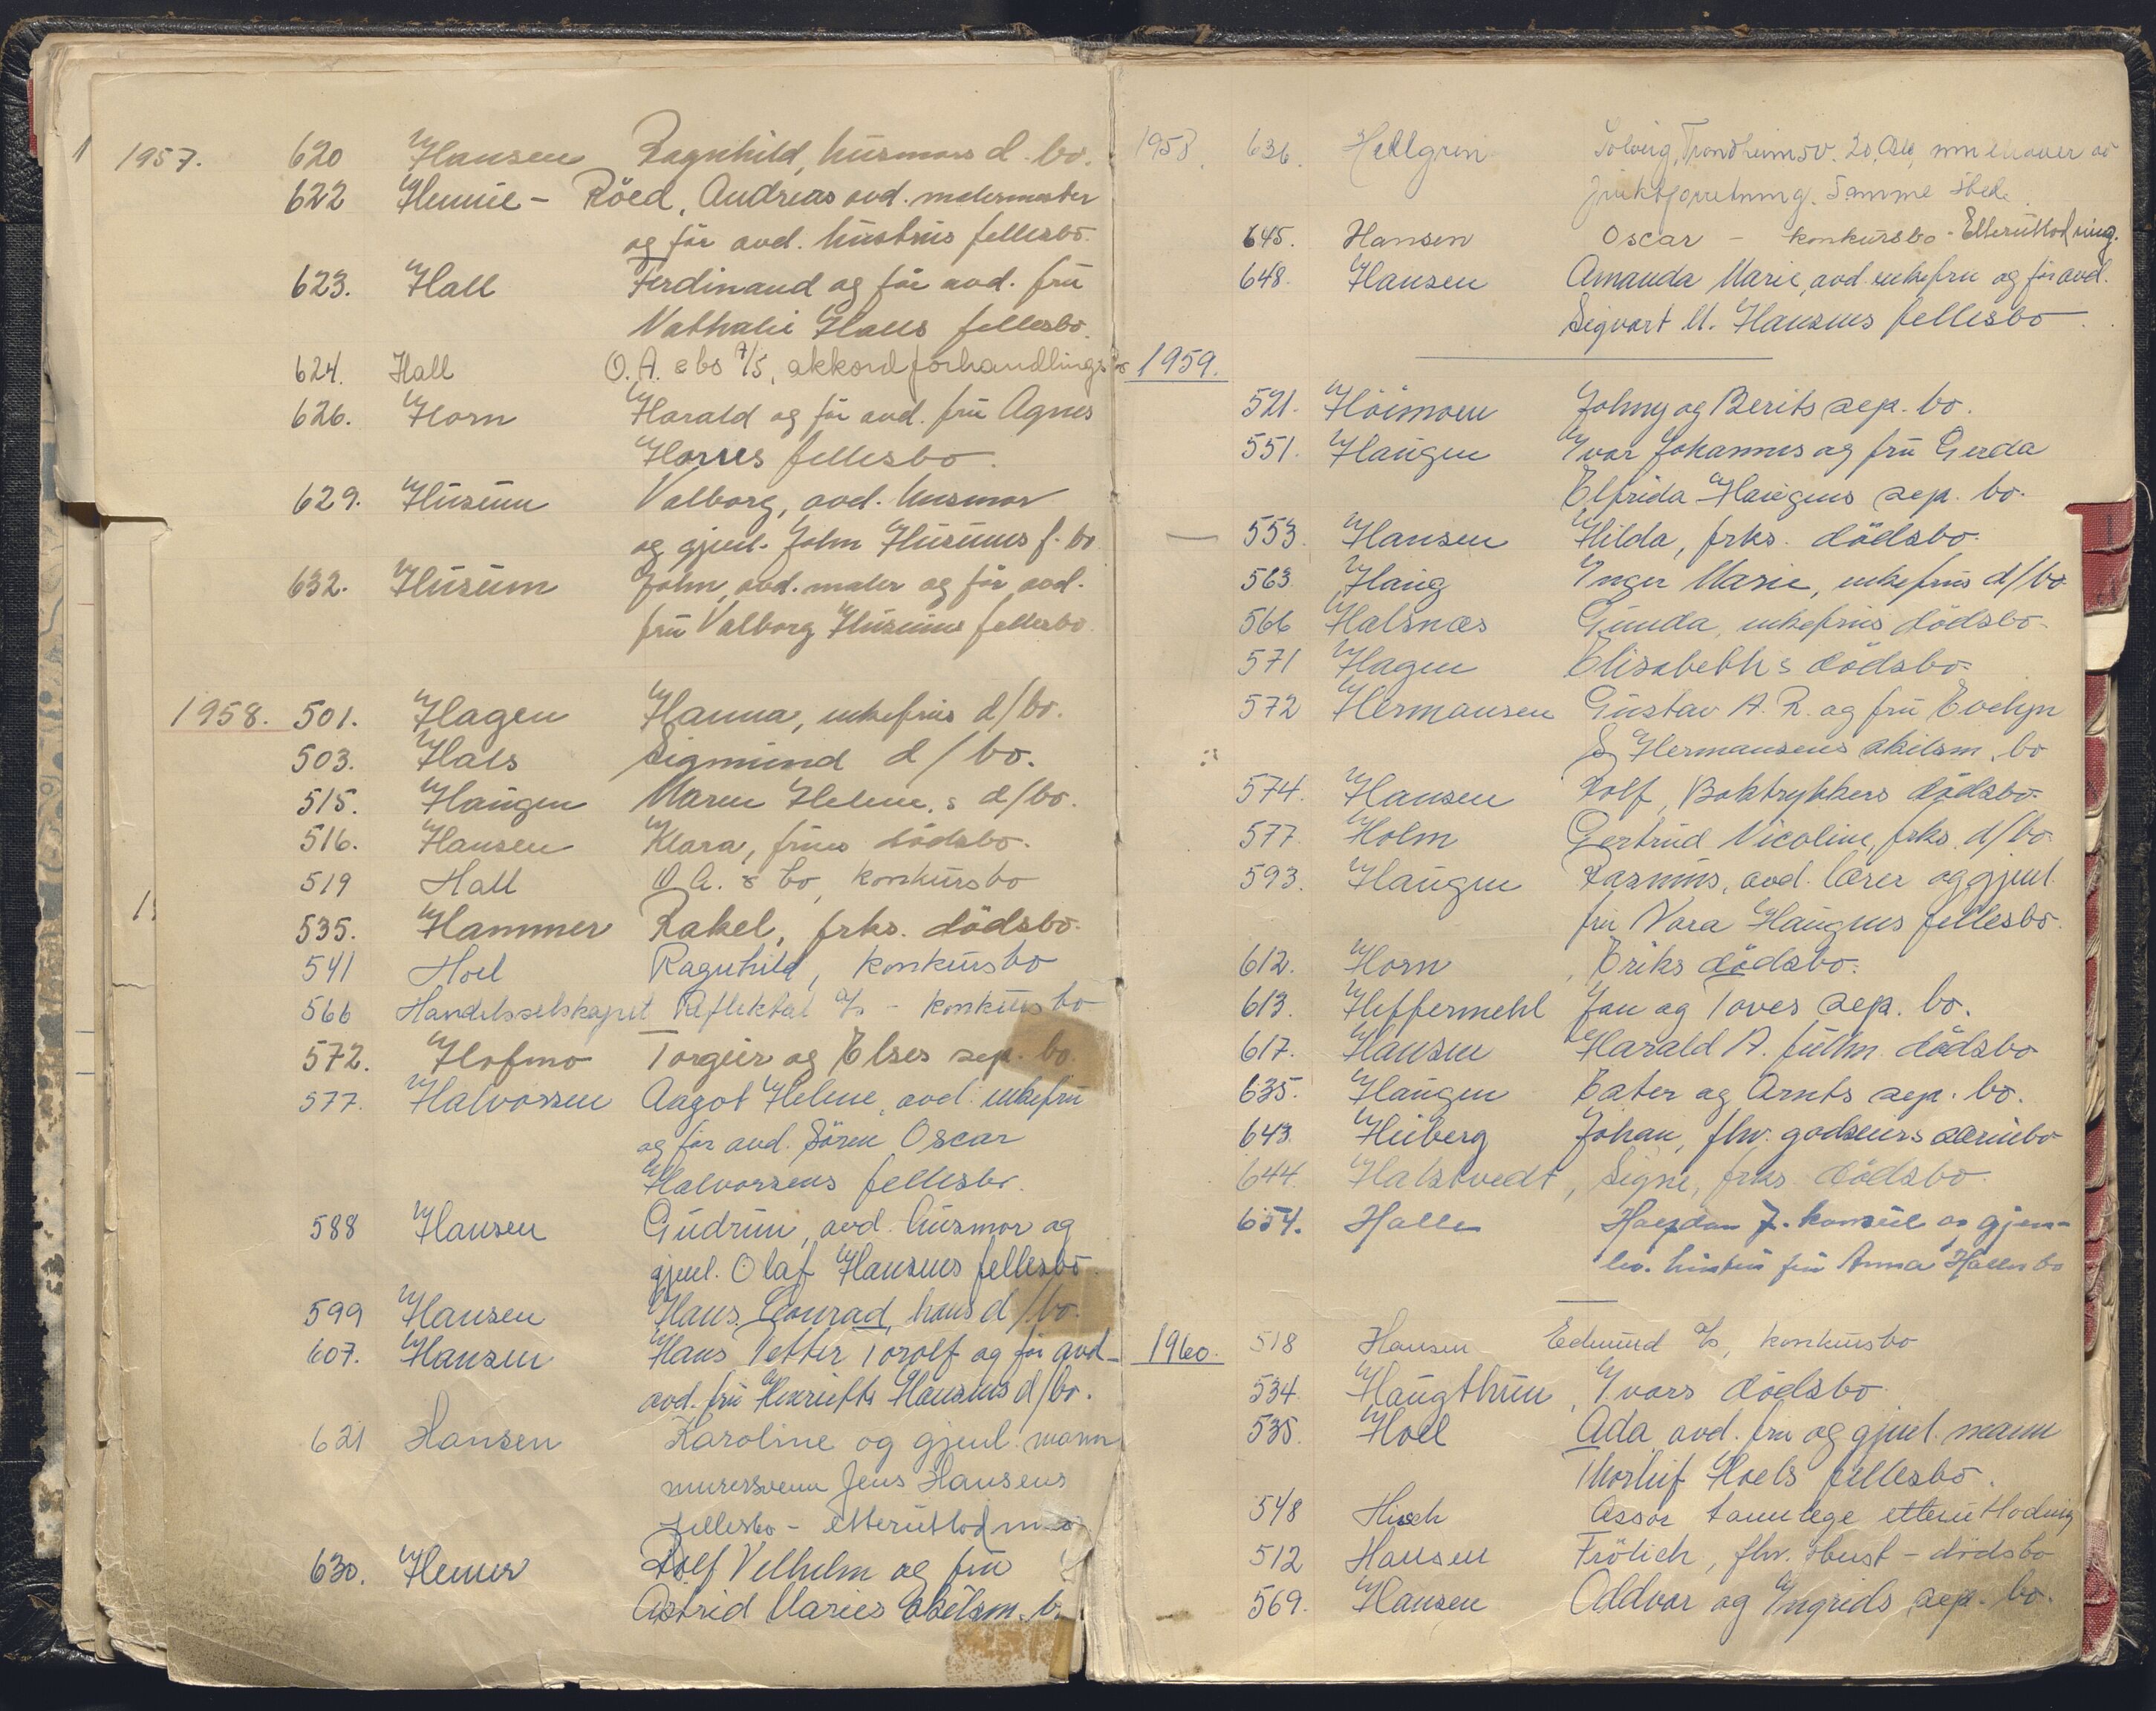 1957. 620 Hansen Ragnhild, husmors d. bo.
622 Hennie - Röed, Andreas avd. malermester
og før avd. hustrus fellesbo.
623. Hall Ferdinand og før avd. fru
Nathalie Halls fellesbo.
624. Hall O. A. s bo A/S, akkordforhandlings bo
626. Horn Harald og før avd. fru Agnes
Horns fellesbo.
629. Husum Valborg, avd. husmor
og gjenl. John Husums f. bo
632. Husum John, avd. maler og før avd.
fru Valborg Husums fellesbo
1958. 501. Hagen Hanna, enkefrus d/bo.
503. Hals Sigmund d/bo.
515. Haugen Maren Helene, s d/bo.
516. Hansen Klara, frues dödsbo.
519 Hall O. A. s bo, konkursbo
535. Hammer Rakel, frks. dödsbo.
541 Hoel Ragnhild, konkursbo
566 Handelsselskapet Reflektal A/S - konkursbo
572. Hofmo Torgeir og Elses sep. bo.
577. Halvorsen Aagot Helene, avd. enkefru
og før avd. Sören Oscar
Halvorsens fellesbo.
588 Hansen Gudrun, avd. husmor og
gjenl. Olaf Hansens fellesbo
599 Hansen Hans Conrad, hans d/bo.
607. Hansen Hans Petter Torolf og før avd-
avd. fru Henriette Hansens d/bo.
621 Hansen Karoline og gjenl. mann
murersvenn Jens Hansens
fellesbo - etterutlodning
630. Henner Rolf Velhelm og fru
Astrid Maries skilsm. b.
1958. 636. Hellgren Solveig, Trondheimsv. 20, innehaver av
fruktforretning. Samme sted.
645. Hansen Oscar - konkursbo - Etterutlodning.
648. Hansen Amanda Marie, avd. enkefru og før avd.
Sigvart M. Hansens fellesbo
1959.
521. Höimoen Johny og Berits sep. bo.
551. Haugen Ivar Johannes og fru Gerda
Elfrida Haugens sep. bo.
553. Hansen Hilda, frks. dödsbo.
563. Haug Inger Marie, enkefrus d/bo
566 Halsnæs Gunda, enkefrus dödsbo.
571 Hagen Elisabeths dödsbo.
572 Hermansen Gustav A. R. og fru Evelyn
S. Hermansens skilsm. bo
574. Hansen Rolf, Boktrykkers dödsbo.
577. Holm Gertrud Nicoline, frks. d/bo.
593. Haugen Rasmus, avd. lærer og gjenl.
fru Nora Haugens fellesbo.
612. Horn, Eriks dödsbo.
613. Heffermehl Jan og Toves sep. bo.
617. Hansen Harald A. fullm. dödsbo
635. Haugen Ester og Arnts sep. bo.
643. Heiberg Johan, fhv. godseiers særeiebo
644. Halstvedt, Signe, frks. dödsbo.
654. Halle Halfdan J. konsul og gjen-
lev. hustru fru Anna Halles bo
1960. 518 Hansen Edmund A/S, konkursbo
534. Haugthun, Ivars dödsbo.
535. Hoel Ada avd. fru og gjenl. mann
Thorleif Hoels fellesbo.
548 Hirsch Assor tannlege etterutlodning
512 Hansen Frölich, fhv. - dödsbo
569. Hansen Oddvar og Ingrids sep. bo.